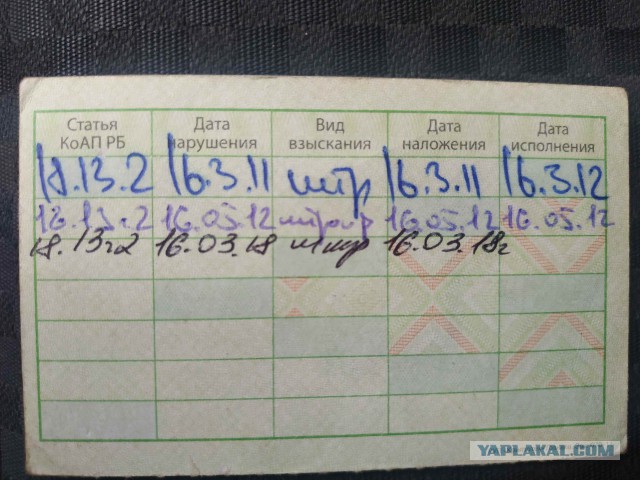 Статья КоАП РБ Дата нарушения Вид взыскания Дата наложения Дата исполнения
18.13.2 16.3.11 штр 16.3.11 16.3.12
18.13ч2 16.05.12 штраф 16.05.12 16.05.12
18.13ч2 16.03.18 штр 16.03.18г
YAPLAKAL.COM